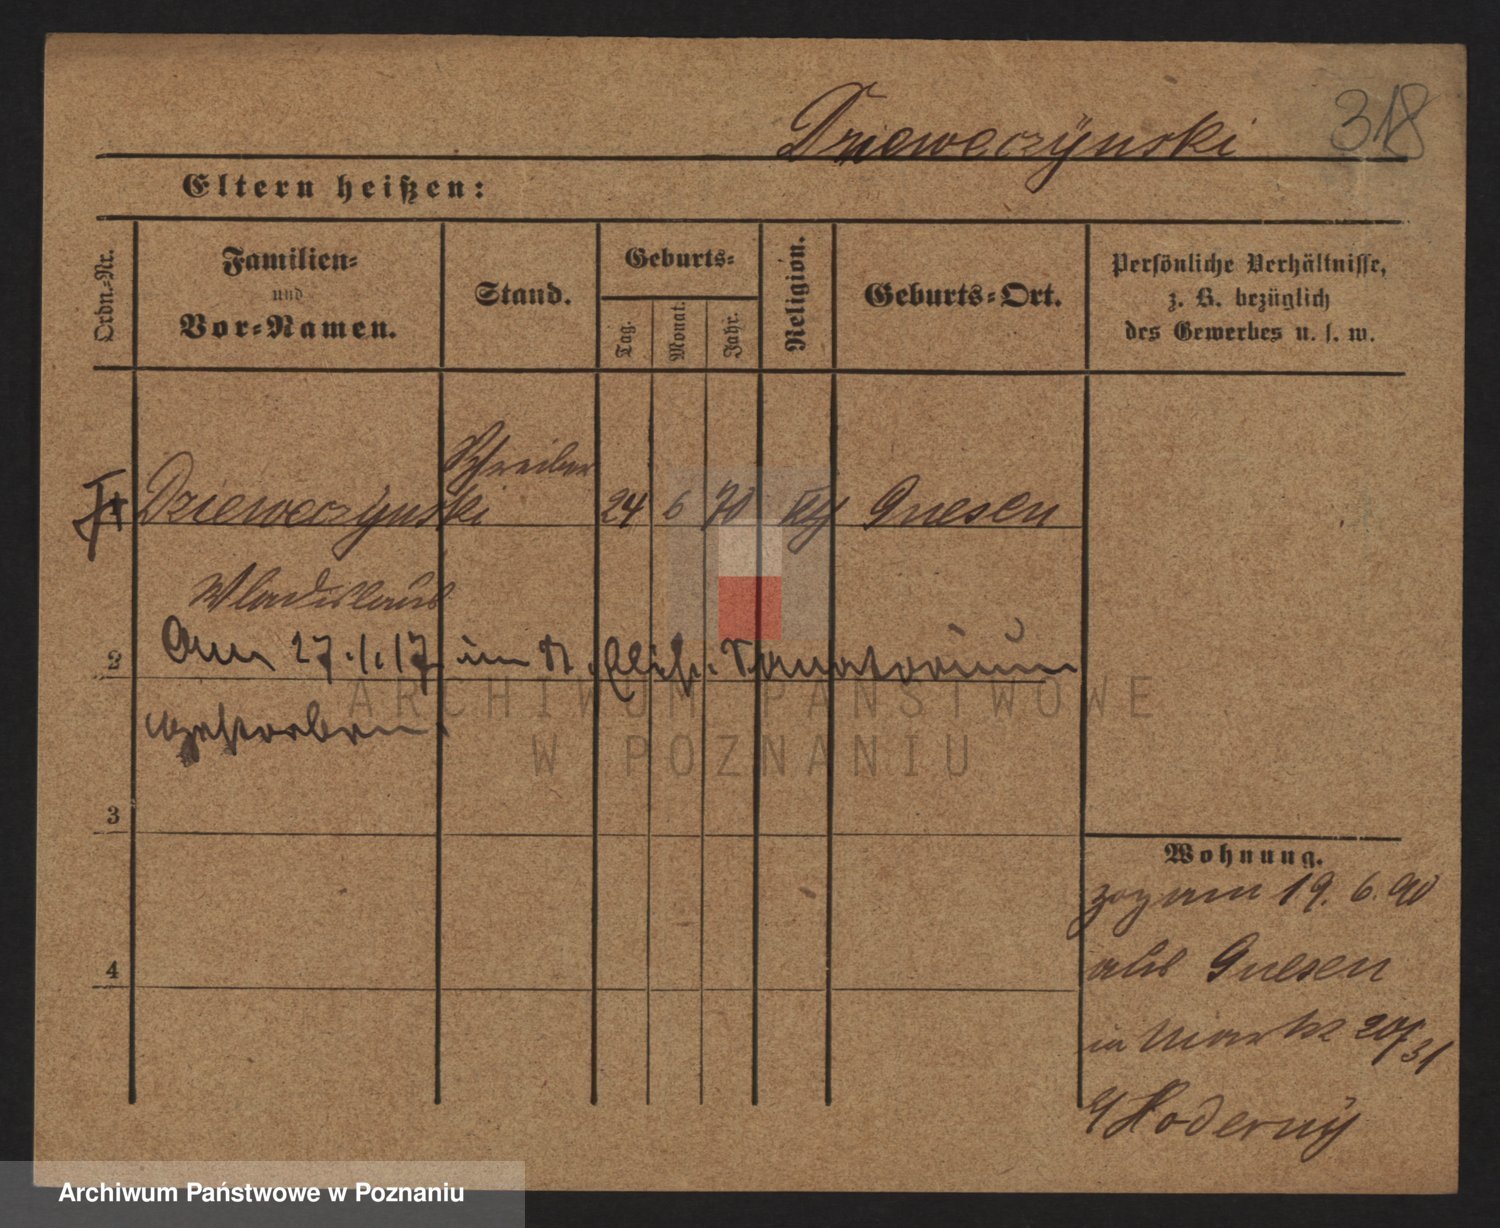 Dzieweczÿnski 318
Eltern heißen:
Ordn.-Nr.
Familien-
und
Vor-Namen.
Stand.
Geburts-
Tag.
Monat.
Jahr.
Religion.
Geburts-Ort.
Persönliche Verhältnisse,
z. B. bezüglich
des Gewerbes u. s. w.
Schreiber
Dzieweczÿnski 24 6 70 Gnesen
Wladislaus
2 Am 27.1.17 im St. Elis. Sanatorium
gestorben.
ARCHIWUM PAŃSTWOWE
W POZNANIU
3
Wohnung.
zog am 19. 6. 90
4
aus Gnesen
in Markt 20/31
Archiwum Państwowe w Poznaniu